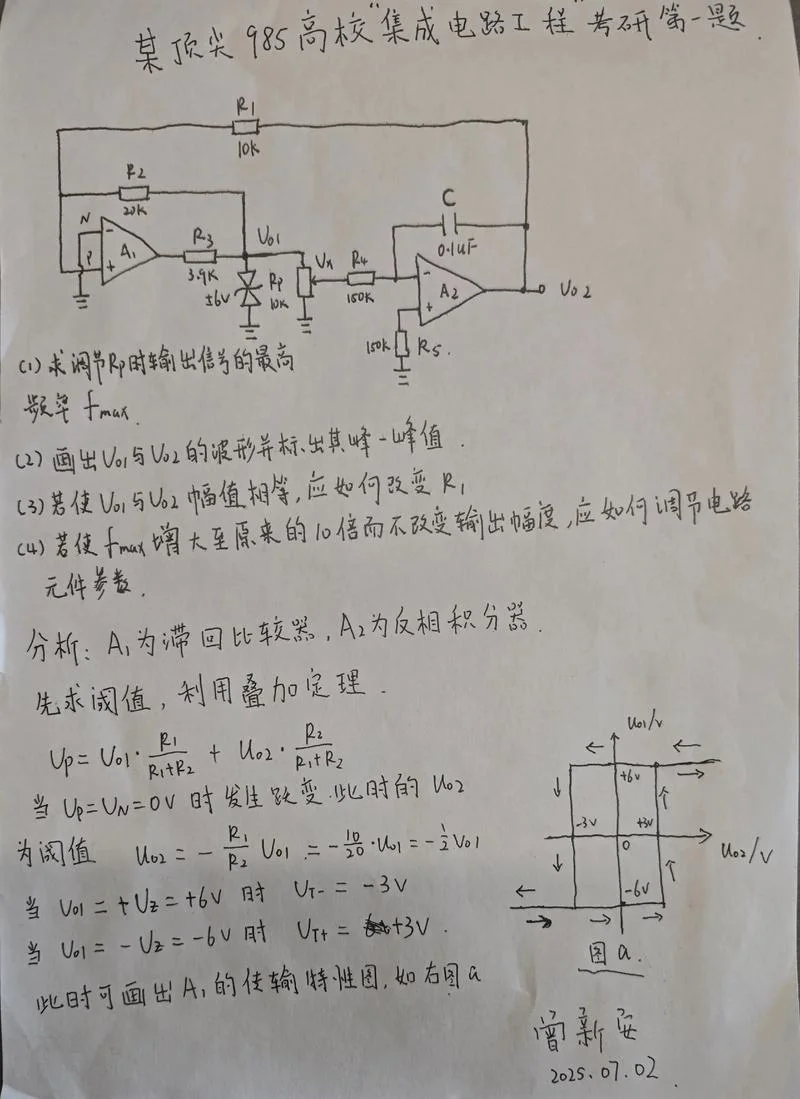 某顶尖985高校"集成电路工程"考研第一题.
R1
10K
R2
20K
N
-
P
+
A1
R3
3.9K
Uo1
±6V
Rp
10K
Un
R4
150K
C
0.1uF
-
+
A2
Uo2
150K
R5.
(1)求调节Rp时输出信号的最高
频率 fmax.
(2)画出Uo1与Uo2的波形并标出其峰-峰值.
(3)若使Uo1与Uo2幅值相等,应如何改变R1
(4)若使fmax增大至原来的10倍而不改变输出幅度,应如何调节电路
元件参数.
分析:A1为滞回比较器,A2为反相积分器.
先求阈值,利用叠加定理.
Up=Uo1·R1/(R1+R2) + Uo2·R2/(R1+R2)
当 Up=UN=0V 时发生跃变.此时的 Uo2
为阈值 Uo2 = -R1/R2 Uo1 = -10/20·Uo1 = -1/2 Uo1
当 Uo1=+Uz=+6V 时 UT- = -3V
当 Uo1=-Uz=-6V 时 UT+ = +3V.
此时可画出A1的传输特性图,如右图a
Uo1/V
+6V
-3V
+3V
0
Uo2/V
-6V
图a.
曾新安
2025.07.02.